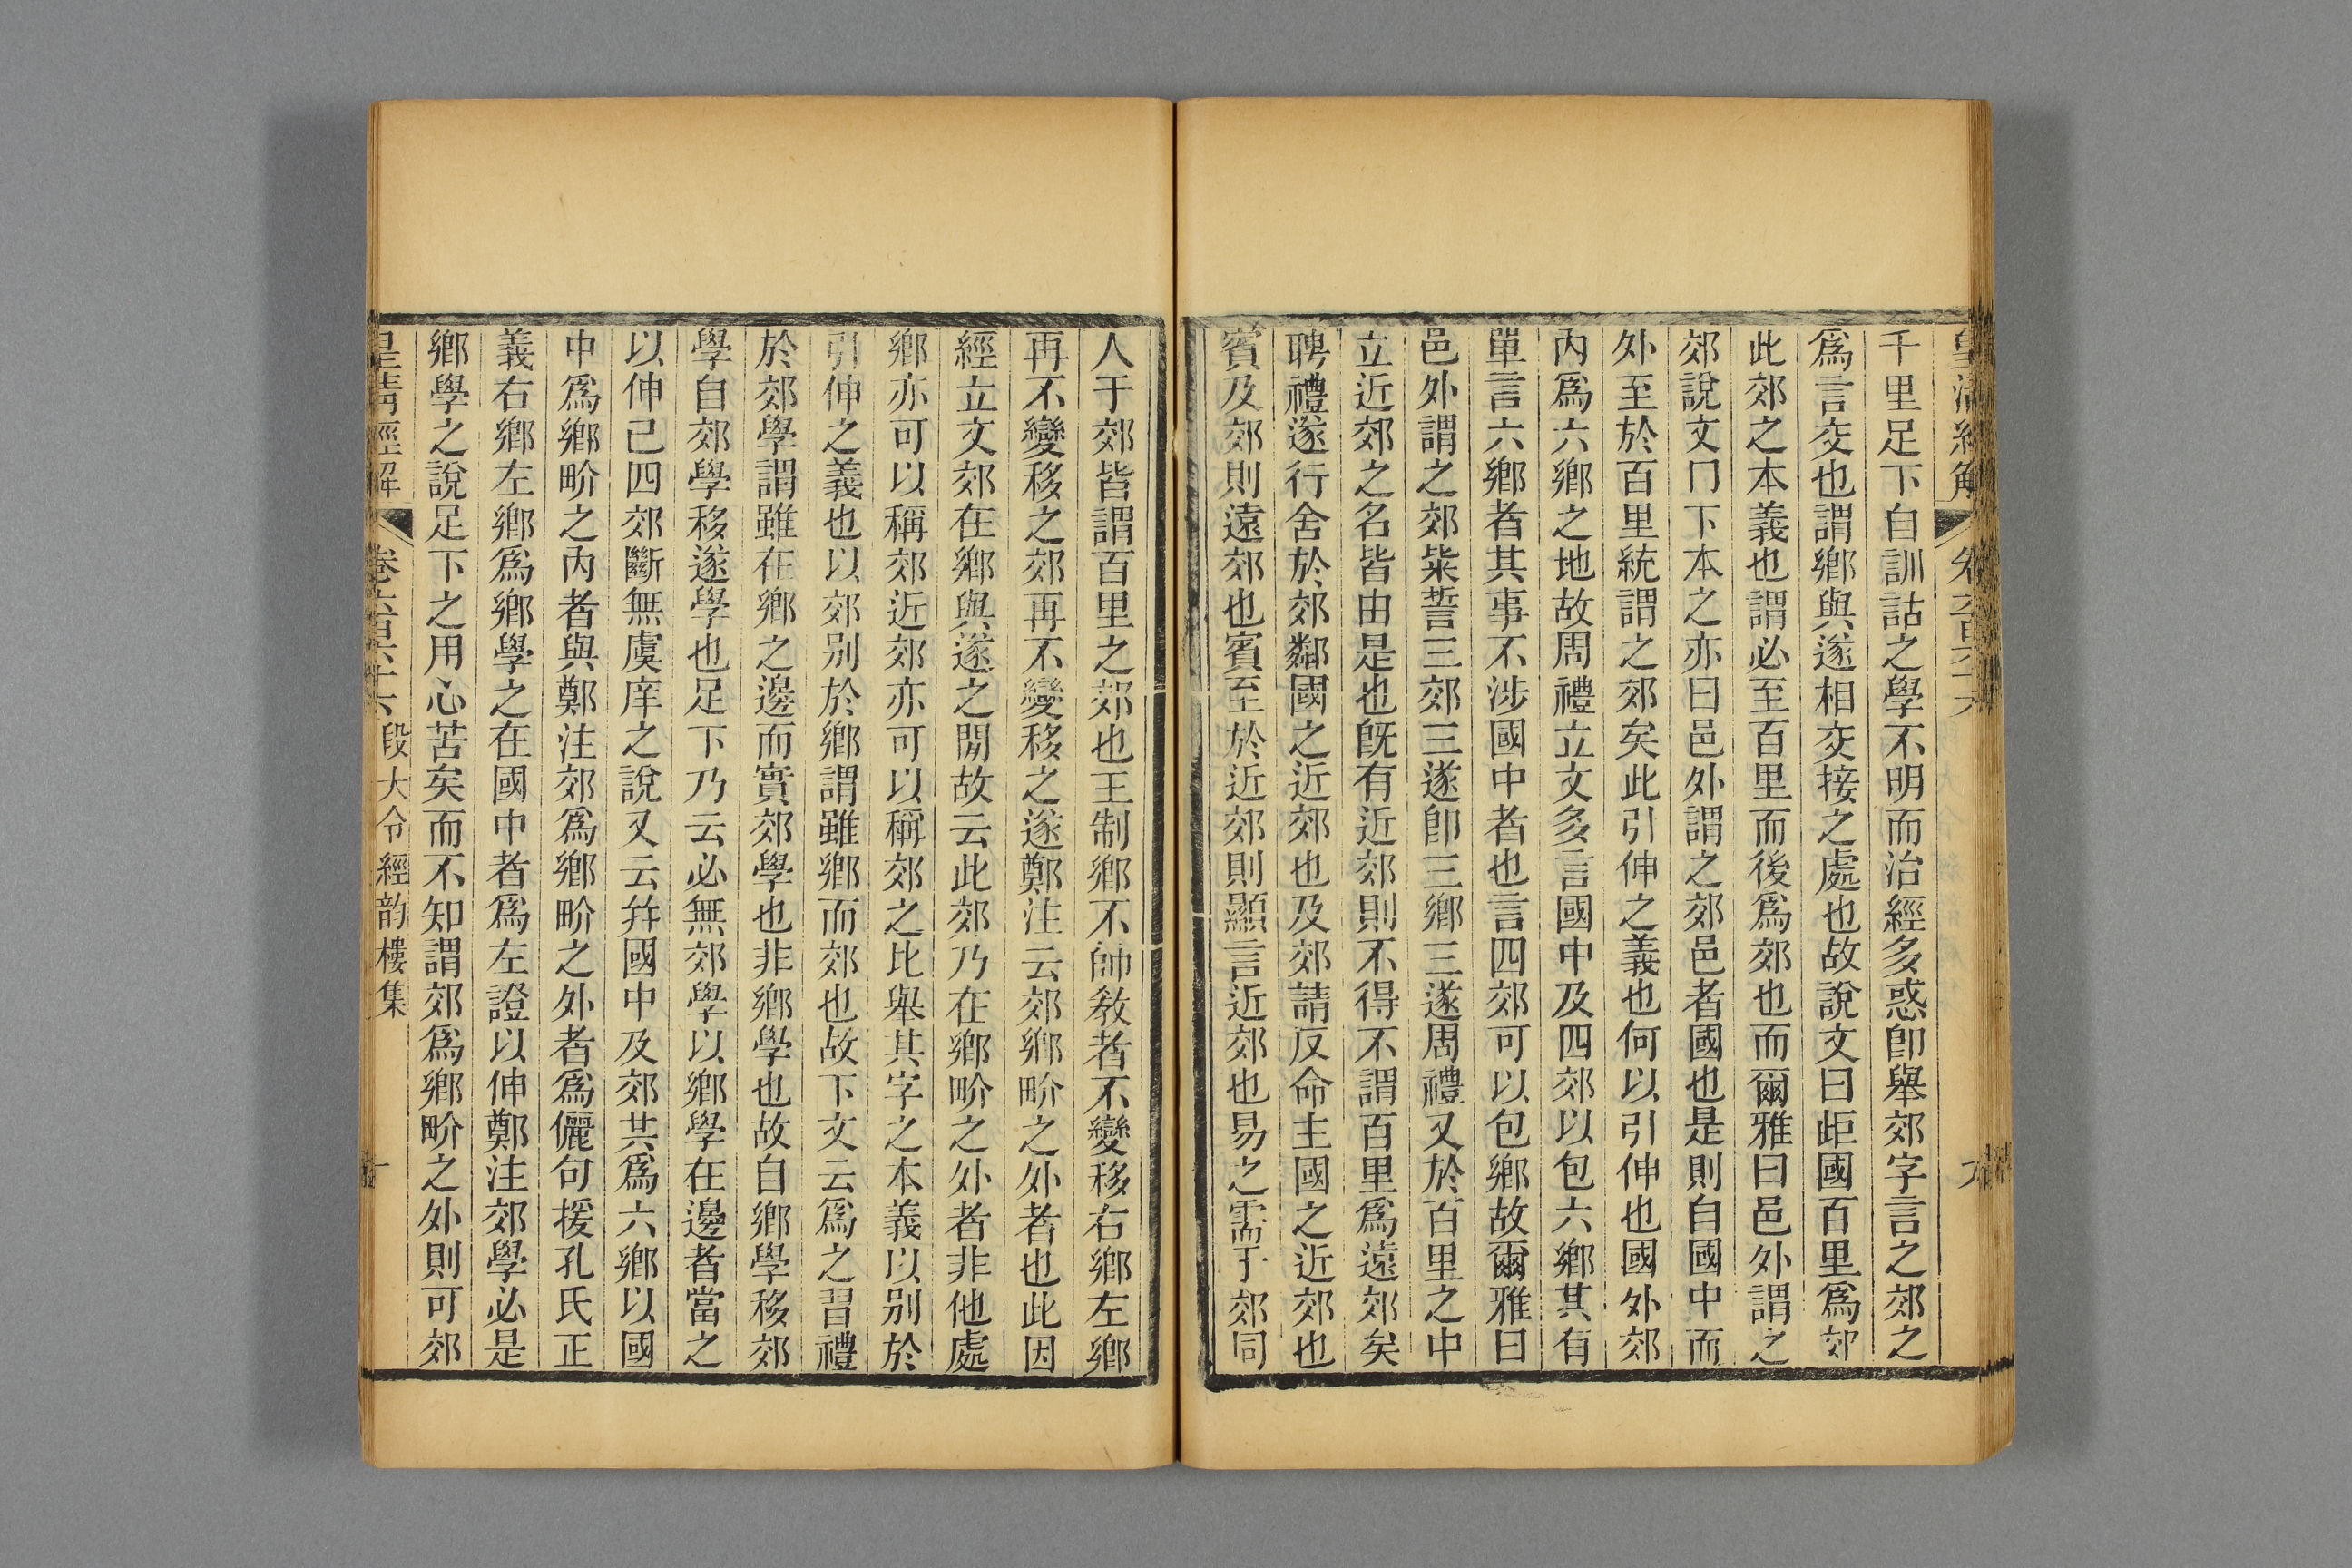 千里足下自訓詁之學不明而治經多惑卽舉郊字言之郊之
爲言交也謂鄉與遂相交接之處也故說文曰歫國百里爲郊
此郊之本義也謂必至百里而後爲郊也而爾雅曰邑外謂之
郊說文冂下本之亦曰邑外謂之郊邑者國也是則自國中而
外至於百里統謂之郊矣此引伸之義也何以引伸也國外郊
內爲六鄉之地故周禮立文多言國中及四郊以包六鄉其有
單言六鄉者其事不涉國中者也言四郊可以包鄉故爾雅曰
邑外謂之郊粊誓三郊三遂卽三鄉三遂周禮又於百里之中
立近郊之名皆由是也旣有近郊則不得不謂百里爲遠郊矣
聘禮遂行舍於郊鄰國之近郊也及郊請反命主國之近郊也
賓及郊則遠郊也賓至於近郊則顯言近郊也易之需于郊同
人于郊皆謂百里之郊也王制鄉不帥教者不變移右鄉左鄉
再不變移之郊再不變移之遂鄭注云郊鄉畍之外者也此因
經立文郊在鄉與遂之閒故云此郊乃在鄉畍之外者非他處
鄉亦可以稱郊近郊亦可以稱郊之比舉其字之本義以别於
引伸之義也以郊别於鄉謂雖鄉而郊也故下文云爲之習禮
於郊學謂雖在鄉之邊而實郊學也非鄉學也故自鄉學移郊
學自郊學移遂學也足下乃云必無郊學以鄉學在邊者當之
以伸己四郊斷無虞庠之說又云幷國中及郊共爲六鄉以國
中爲鄉畍之內者與鄭注郊爲鄉畍之外者爲儷句援孔氏正
義右鄉左鄉爲鄉學之在國中者爲左證以伸鄭注郊學必是
鄉學之說足下之用心苦矣而不知謂郊爲鄉畍之外則可郊
皇清經解
卷六百六十六
段大令經韵樓集